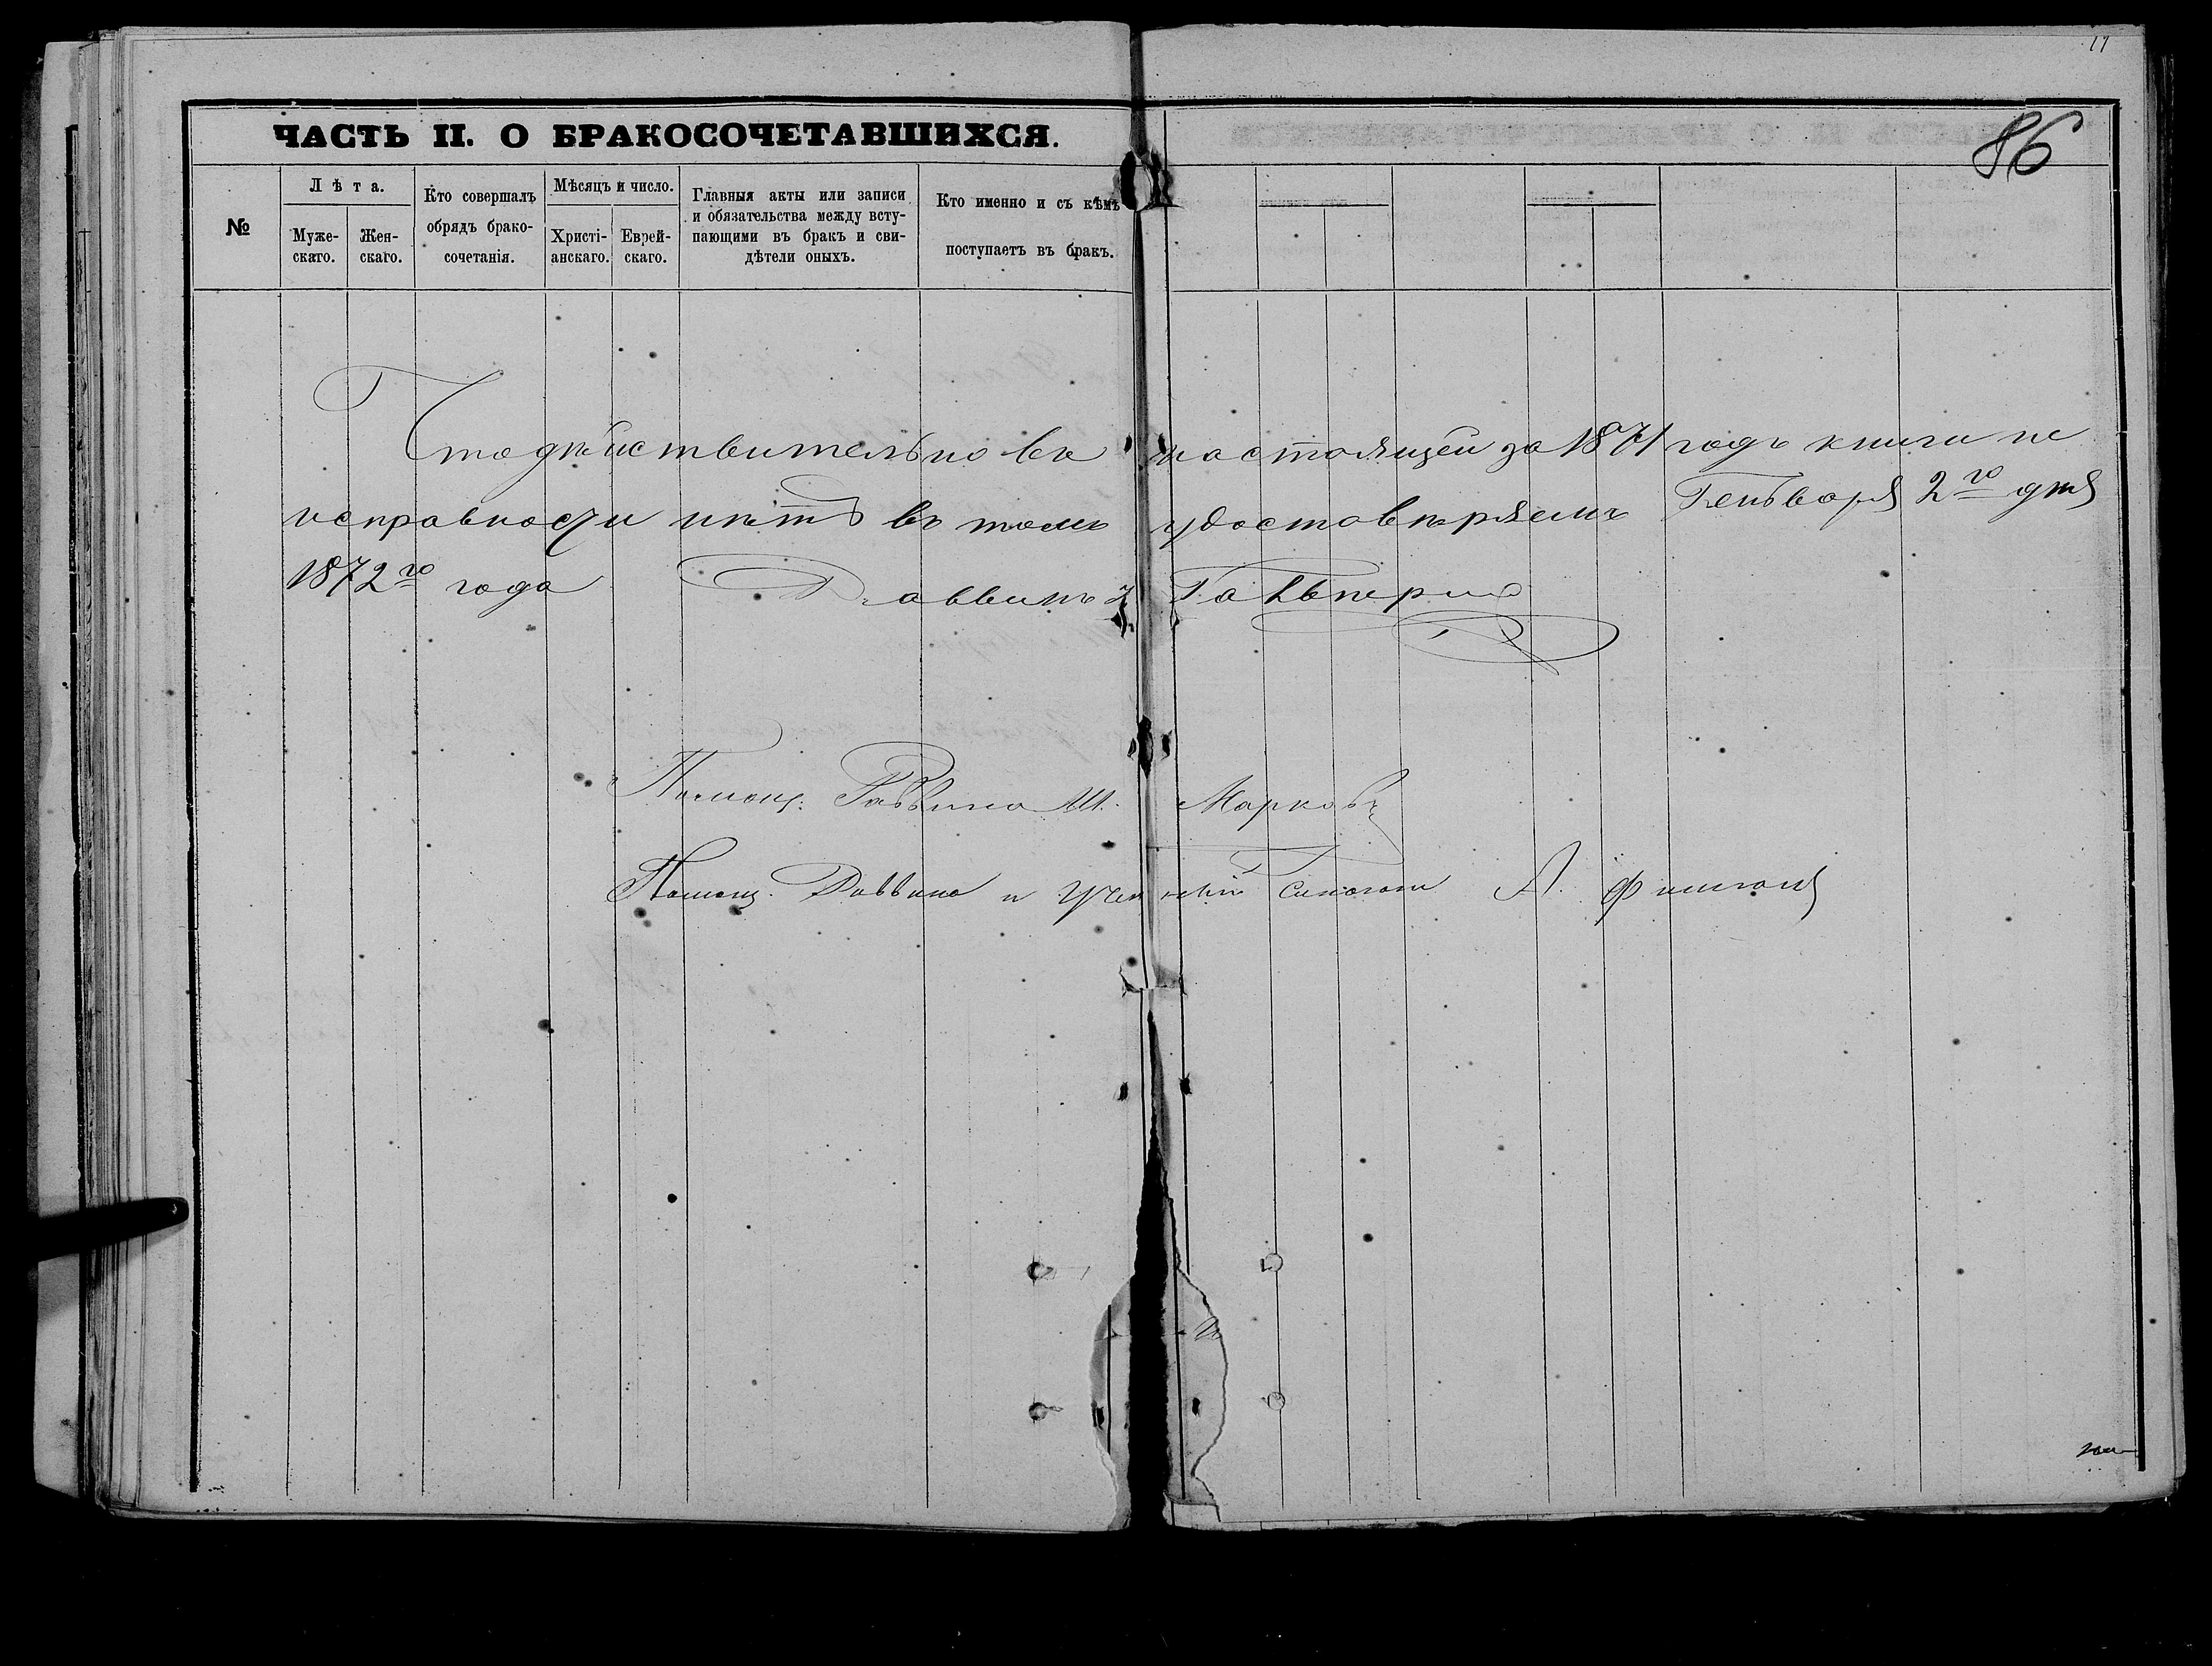 17
86
ЧАСТЬ II. О БРАКОСОЧЕТАВШИХСЯ.
№
Лѣта.
Муже-
скаго.
Жен-
скаго.
Кто совершалъ
обрядъ брако-
сочетанія.
Мѣсяцъ и число.
Христі-
анскаго.
Еврей-
скаго.
Главныя акты или записи
и обязательства между всту-
пающими въ бракъ и сви-
дѣтели оныхъ.
Кто именно и съ кѣмъ
поступаетъ въ бракъ.
Что дѣйствительно въ настоящей за 1871 годъ книги не
исправности нѣтъ въ томъ удостовѣряемъ Генваря 2го дня
1872го года Раввинъ Гальперинъ
Помощ. Раввина Ш. Марковъ
Помощ. Раввина и Ученый Синагоги А.